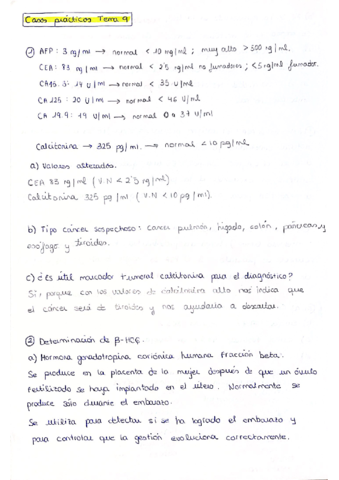 Casos prácticos Tema 9
① AFP: 3 ng/ml → normal < 10 mg/ml ; muy alto > 500 ng/ml.
CEA: 83 ng/ml → normal < 2'5 ng/ml no fumadores ; < 5 ng/ml fumador.
CA15.3: 19 U/ml → normal < 35 U/ml
CA 125: 20 U/ml → normal < 46 U/ml
CA 19.9: 19 U/ml → normal 0 a 37 U/ml
Calcitonina → 325 pg/ml. → normal < 10 pg/ml.
a) Valores alterados.
CEA 83 ng/ml (V.N < 2'5 ng/ml)
Calcitonina 325 pg/ml (V.N < 10 pg/ml).
b) Tipo cáncer sospechoso: cáncer pulmón, hígado, colón, páncreas y
esófago y tiroides.
c) ¿Es útil marcador tumoral calcitonina para el diagnóstico?
Si, porque con los valores de calcitonina alto nos indica que
el cáncer será de tiroides y nos ayudaría a descartar.
② Determinación de β-HCG.
a) Hormona gonadotropina coriónica humana fracción beta.
Se produce en la placenta de la mujer después de que un óvulo
fertilizado se haya implantado en el útero. Normalmente se
produce solo durante el embarazo.
Se utiliza para detectar si se ha logrado el embarazo y
para controlar que la gestión evoluciona correctamente.